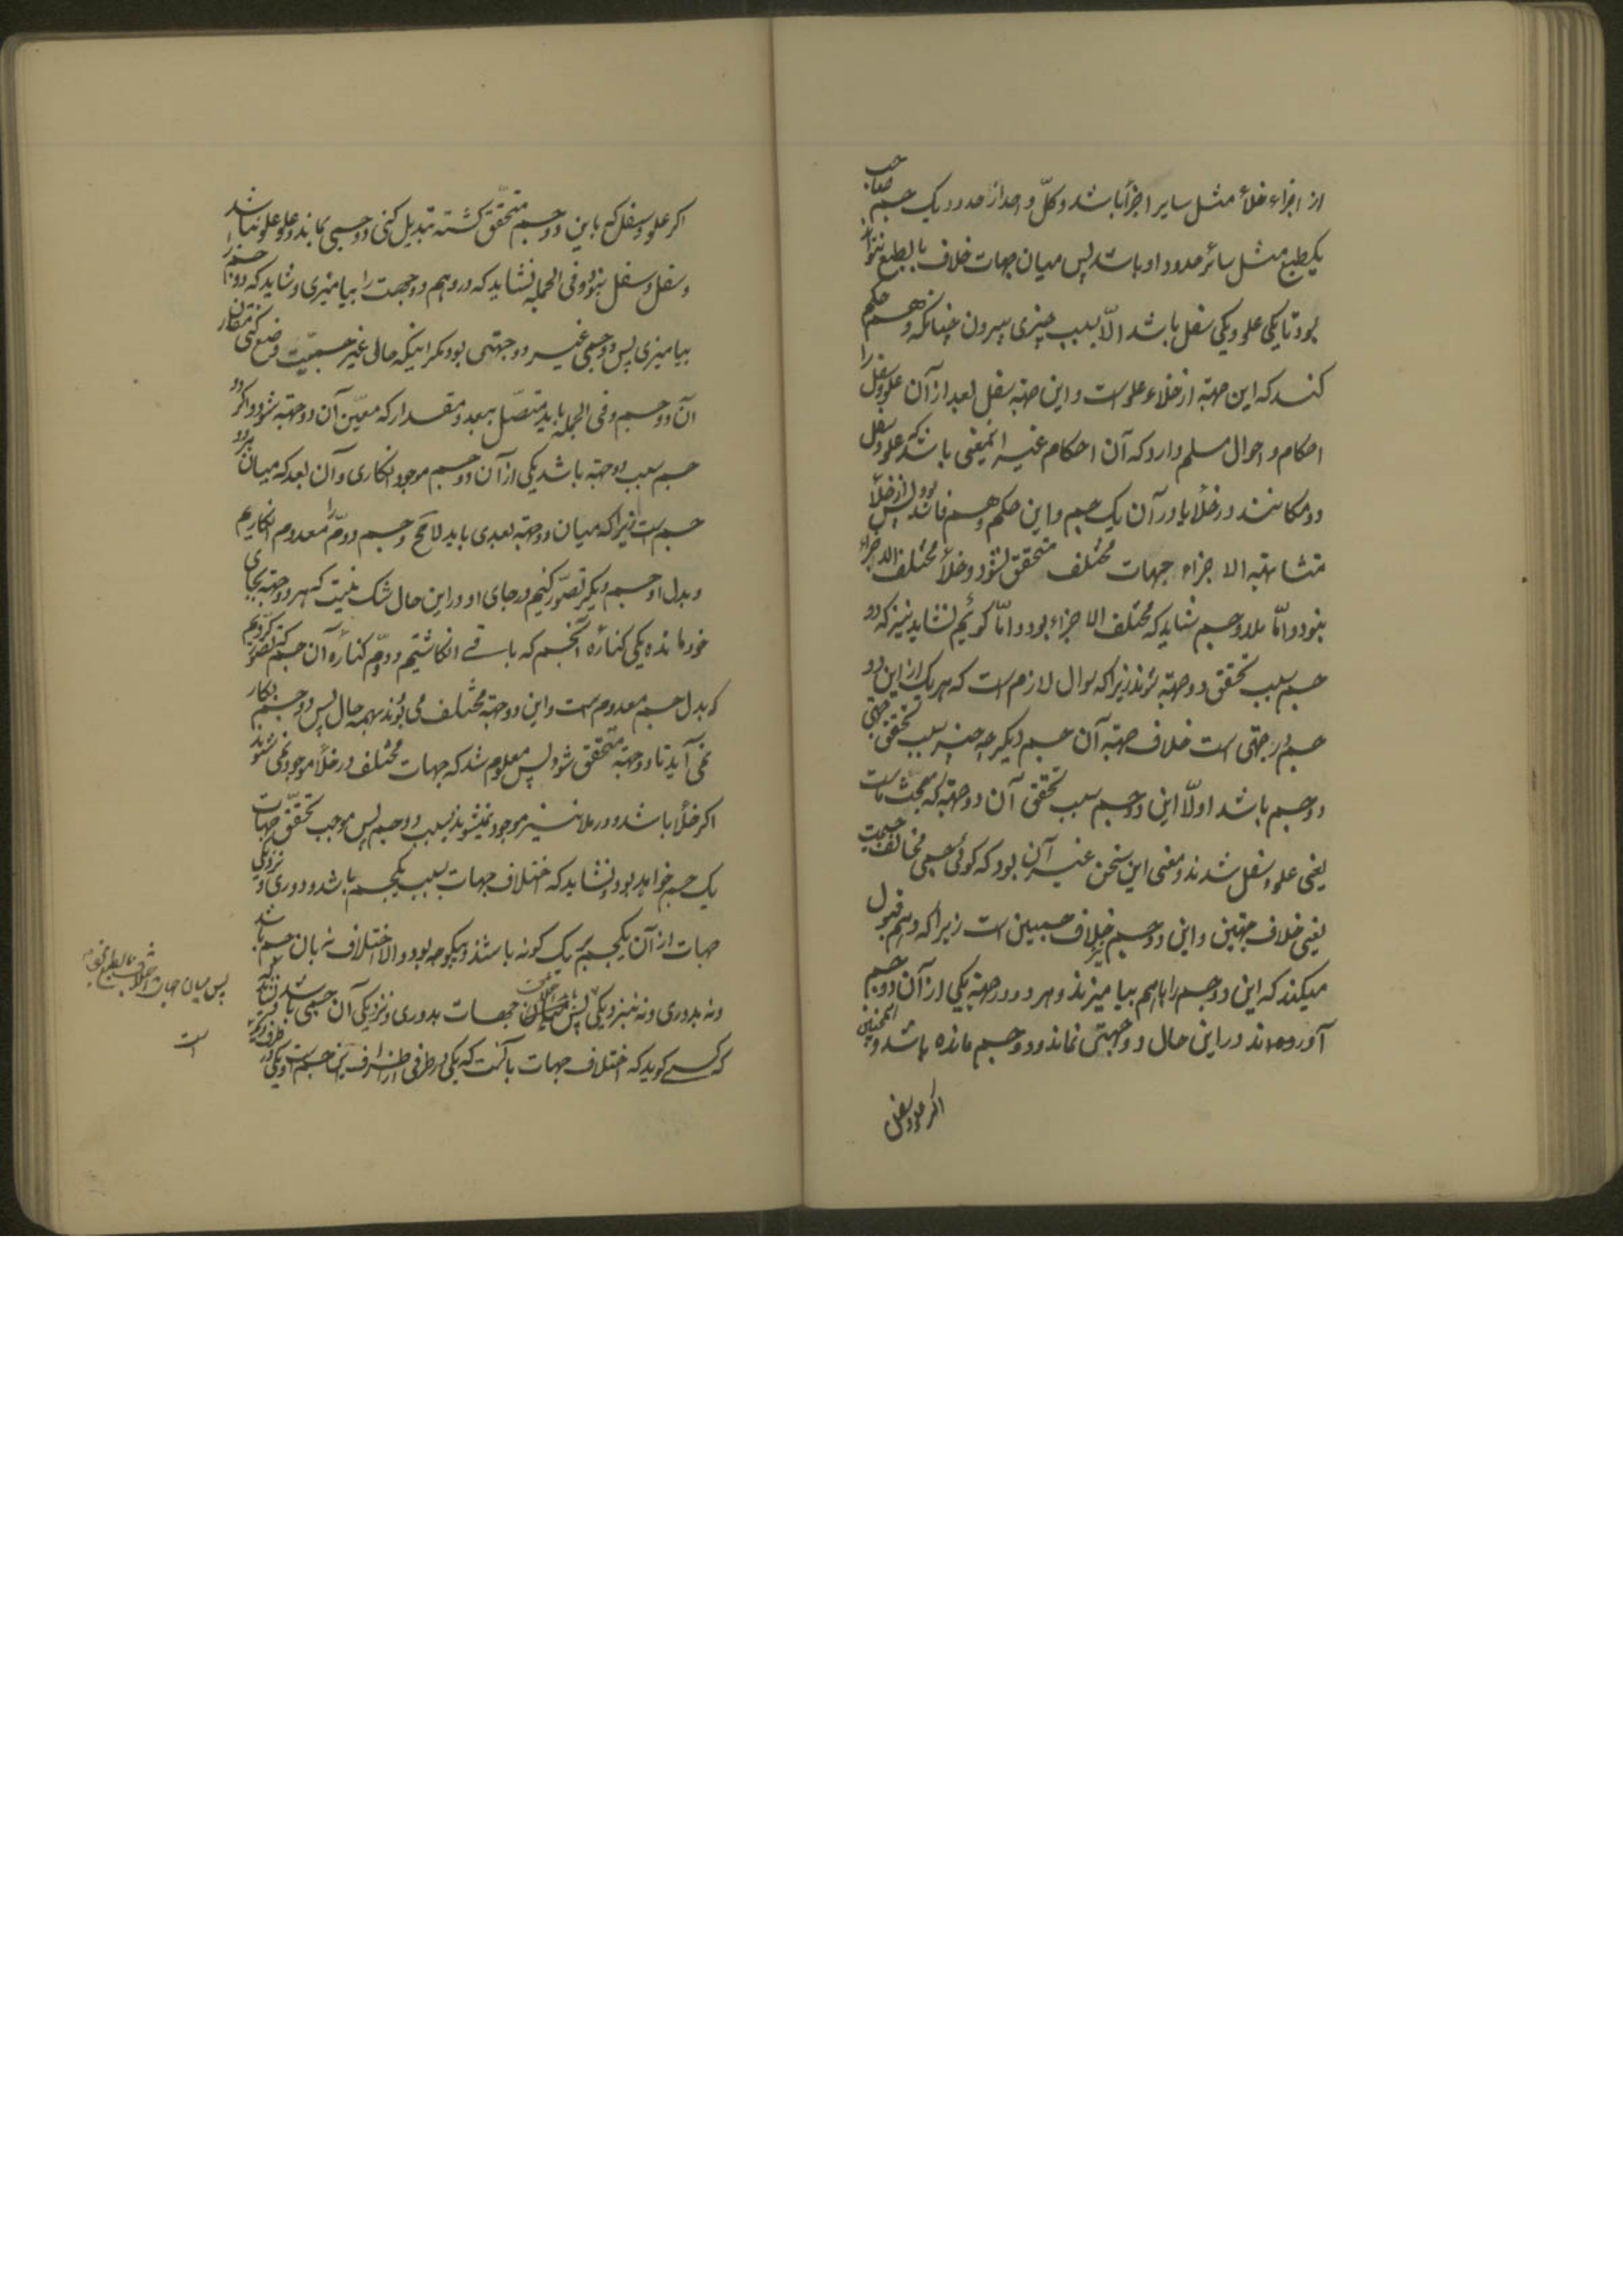 از اجزاء خلأ مثل سایر اجزأ باشد و کلّ واحد از حدود یک جسم صاحب
یکطبع مثل سائر حدود او باشد پس میان جهات خلاف بالطبع نتواند
بود تا یکی علو و یکی سفل باشد الّا بسبب چیزی بیرون چنانکه وهم حکم
کند که این جهة از خلاء علو است و این جهة سفل بعد از آن علو و سفل را
احکام و احوال مسلم دارد که آن احکام غیر اینمعنی باشد که علو و سفل
دو مکانند در خلأ یا در آن یک جسم و این حکم وهم فاسد بود پس از خلأ
متشابهة الاجزاء جهات مختلف متحقق نشود و خلأ مختلف الاجزاء
نبود و امّا ملا و جسم شاید که مختلف الاجزاء بود و امّا گوئیم نشاید نیز که دو
جسم سبب تحقق دو جهة شوند زیرا که سوال لازم است که هر یک از این دو
جسم در جهتی است خلاف جهة آن جسم دیگر چه چیز سبب تحقق جهتی
دو جسم باشد اولّا این دو جسم سبب تحقق آن دو جهة که مبحث ماست
یعنی علو و سفل شدند و معنی این سخن غیر آن بود که گوئی جسمی مخالف جسمیت
یعنی خلاف جهتین و این دو جسم خلاف جسمین است زیرا که وهم قبول
میکند که این دو جسم را باهم بیامیزند و هر دو در جهة یکی از آن دو جسم
آورده‌اند در این حال دو جهتی نماند و دو جسم مانده باشد و همچنین
اگر علو و سفل
اگر علو و سفل که باین دو جسم متحقق گشته تبدیل کنی دو جسمی بماند و علو علو نباشد
و سفل و سفل نبود و فی الجمله نشاید که در وهم دو جهت را بیامیزی و شاید که دو جسم را
بیامیزی پس دو جسمی غیر دو جهتی بود مگر اینکه حالی غیر جسمیّت وضع کنی مقارن
آن دو جسم و فی الجمله باید متصّل ببعد و مقدار که معیّن آن دو جهة شود و اگر دو
جسم سبب دو جهة باشد یکی از آن دو جسم موجود انگاری و آن بعد که میان هر دو
جسم است زیرا که میان دو جهة بعدی باید لامح و جسم دوّم را معدوم انگاریم
و بدل او جسم دیگر تصوّر کنیم در جای او و در این حال شک نیست که هر دو جهة بجای
خود مانده یکی کناره آنجسم که باقی انگاشتیم و دوّم کناره آن جسم که تصوّر کردیم
که بدل جسم معدوم است و این دو جهة مختلف می بوند بهمه حال پس دو جسم بکار
نمی آید تا دو جهة متحقق شود پس معلوم شد که جهات مختلف در خلأ موجود نمی شوند
اگر خلأ باشد و در ملا نیز موجود نمیشوند بسبب دو جسم پس موجب تحقّق جهات
یک جسم خواهد بود و نشاید که اختلاف جهات بسبب یکجسم باشد و دوری و نزدیکی
جهات از آن یکجسم بر یک گونه باشند و بیکوجه بود و الا اختلاف نه بان جسم باشد
و نه بدوری و نه بنزدیکی پس میان جهات بدوری و نزدیکی آن جسمی باشد و نشاید که
که کسی گوید که اختلاف جهات بآنست که یکی در طرفی از اطراف این جسم است و یکی در طرف دیگر
پس میان جهات خلاف بالطبع
است